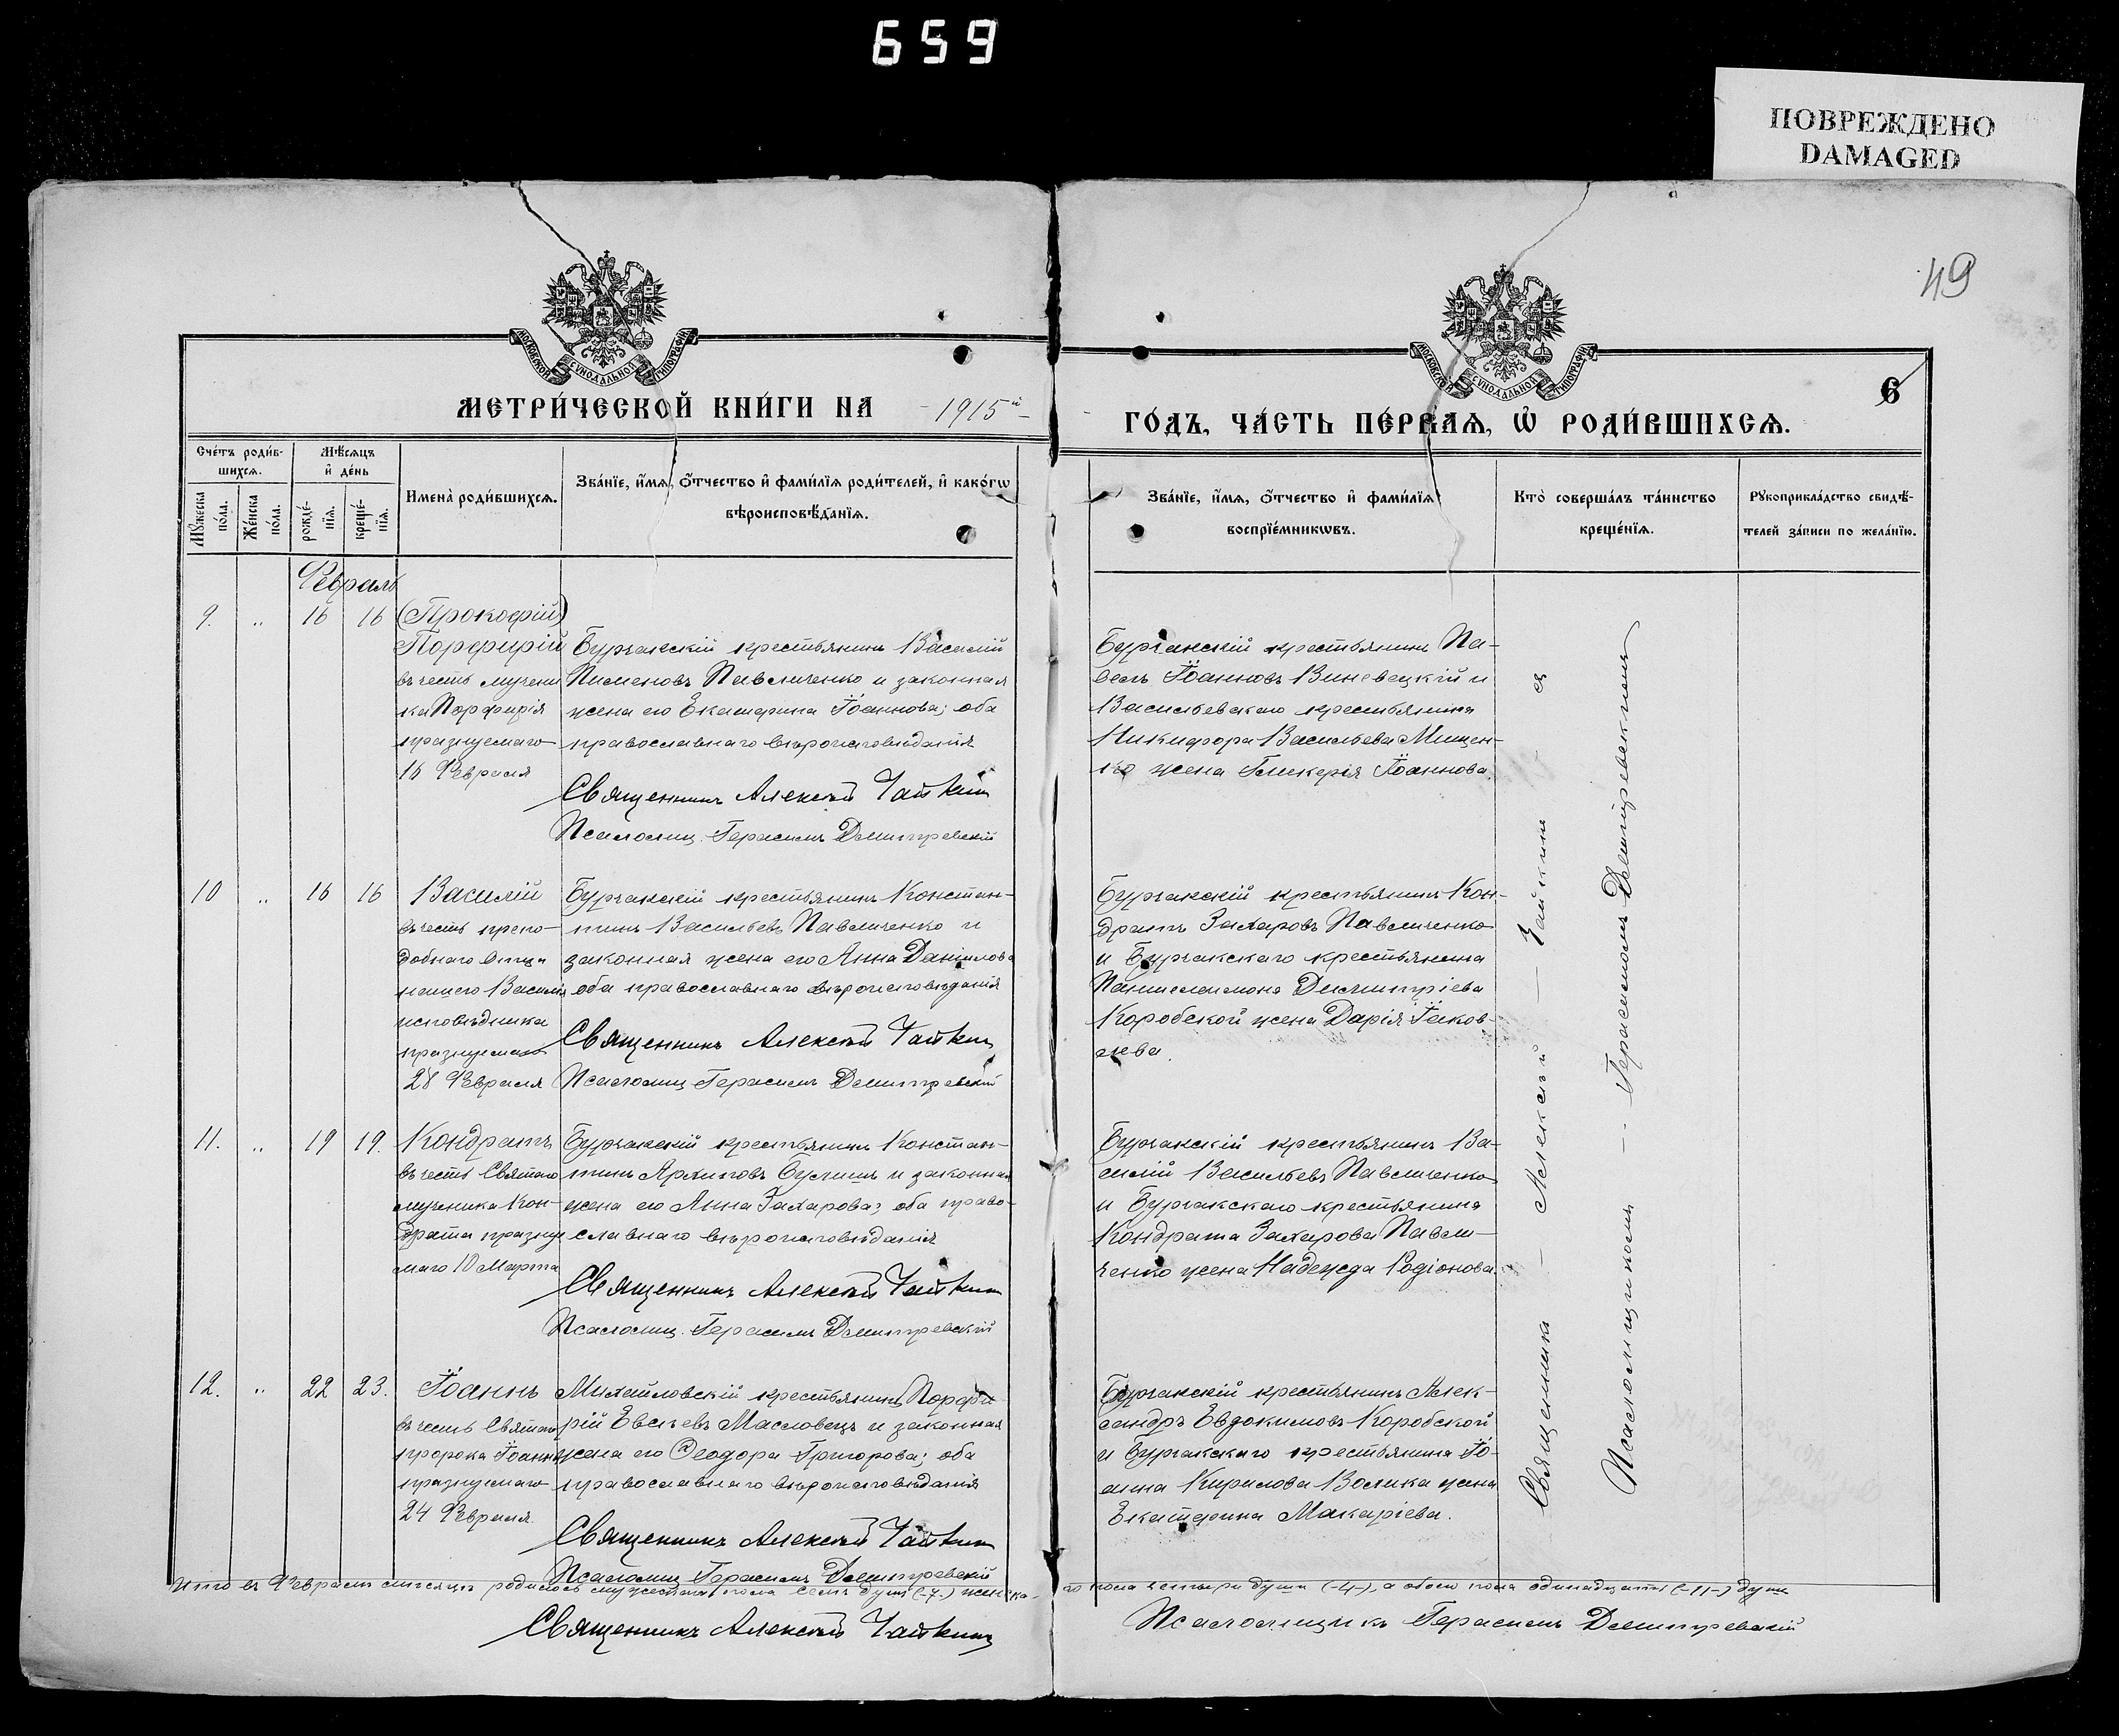 659
ПОВРЕЖДЕНО
DAMAGED
49
МОСКОВСКОЙ СѴНОДАЛЬНОЙ ТИПОГРАФІИ
МОСКОВСКОЙ СѴНОДАЛЬНОЙ ТИПОГРАФІИ
6
МЕТРИ́ЧЕСКОЙ КНИ́ГИ НА -1915й-
ГО́ДЪ, ЧА́СТЬ ПЕ́РВАЯ, Ѡ҆ РОДИ́ВШИХСЯ.
Сче́тъ роди́в-
шихся.
Мѣ́сяцъ
и҆ де́нь
Мꙋ́жеска по́ла.
Же́нска по́ла.
рожде́-
нїя.
креще́-
нїя.
Имена̀ роди́вшихся.
Зва́нїе, и҆́мя, о҆́тчество и҆ фами́лїя роди́телей, и҆ како́гѡ
вѣроисповѣ́данїя.
Зва́нїе, и҆́мя, о҆́тчество и҆ фами́лїя
воспрїе́мникѡвъ.
Кто̀ соверша́лъ та́инство
креще́нїя.
Рꙋкоприкла́дство свидѣ́-
телей за́писи по жела́нїю.
Февраль
9. " 16 16 (Прокофій)
Порфирій
въ честь мучени
ка Порфирія
празнуемаго
16 Февраля
Бурчакскій крестьянинъ Василій
Пименовъ Павличенко и законная
жена его Екатерина Іоаннова; оба
православнаго вѣроисповѣданія
Священникъ Алексѣй Чайкин
Псаломщ. Герасимъ Димитревскій
Бурчакскій крестьянинъ Па-
велъ Іоанновъ Виневецкій и
Васильевскаго крестьянина
Никифора Васильева Мищен-
ко жена Гликерія Іоаннова.
10 " 16 16 Василій
въ честь препо-
добнаго отца
нашего Василія
исповѣдника
празнуемаго
28 Февраля
Бурчакскій крестьянинъ Констан-
тинъ Васильевъ Павличенко и
законная жена его Анна Даніилова
оба православнаго вѣроисповѣданія
Священникъ Алексѣй Чайкин
Псаломщ Герасимъ Димитревскій
Бурчакскій крестьянинъ Кон-
дратъ Захаровъ Павличенко
и Бурчакскаго крестьянина
Пантелеимона Димитріева
Коробской жена Дарія Іаков-
лева.
11. " 19 19. Кондратъ
въ честь Святаго
мученика Кон-
драта празнуе
маго 10 Марта
Бурчакскій крестьянинъ Констан-
тинъ Архиповъ и законная
жена его Анна Захарова; оба право-
славнаго вѣроисповѣданія
Священникъ Алексѣй Чайкин
Псаломщ. Герасимъ Димитревскій
Бурчакскій крестьянинъ Ва-
силій Васильевъ Павличенко
и Бурчакскаго крестьянина
Кондрата Захарова Павли-
ченко жена Надежда Родіонова.
12. " 22 23. Іоаннъ
въ честь Святаго
пророка Іоанна
празнуемаго
24 Февраля.
Михайловскій крестьянинъ Порфи
рій Евсѣевъ Масловецъ и законная
жена его Ѳеодора Григорова; оба
православнаго вѣроисповѣданія
Священникъ Алексѣй Чайкин
Псаломщ Герасимъ Димитревскій
Бурчакскій крестьянинъ Алек-
сандръ Евдокимовъ Коробской
и Бурчакскаго крестьянина Іо-
анна Кирилова Волика жена
Екатерина Макаріева.
Священника — Алексѣй — Чайкин
Псаломщикомъ — Герасимомъ Димитревскимъ
Итого въ Февралѣ мѣсяцѣ родилось мужескаго пола семь душъ (-7-) женска-
го пола четыри души (-4-), а обоего пола одинадцать (-11-) душъ
Священникъ Алексѣй Чайкинъ
Псаломщикъ Герасимъ Димитревскій